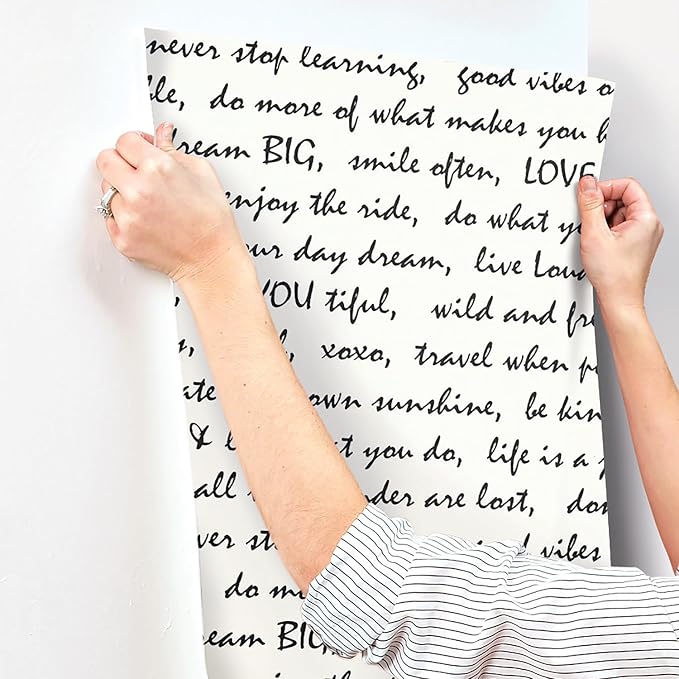 never stop learning, good vibes o
ble, do more of what makes you h
dream BIG, smile often, LOVE
enjoy the ride, do what you
our day dream, live Loud
YOU tiful, wild and fre
xoxo, travel when p
ate own sunshine, be kin
& l t you do, life is a
all nder are lost, don
ver st vibes
do m
eam BIG,